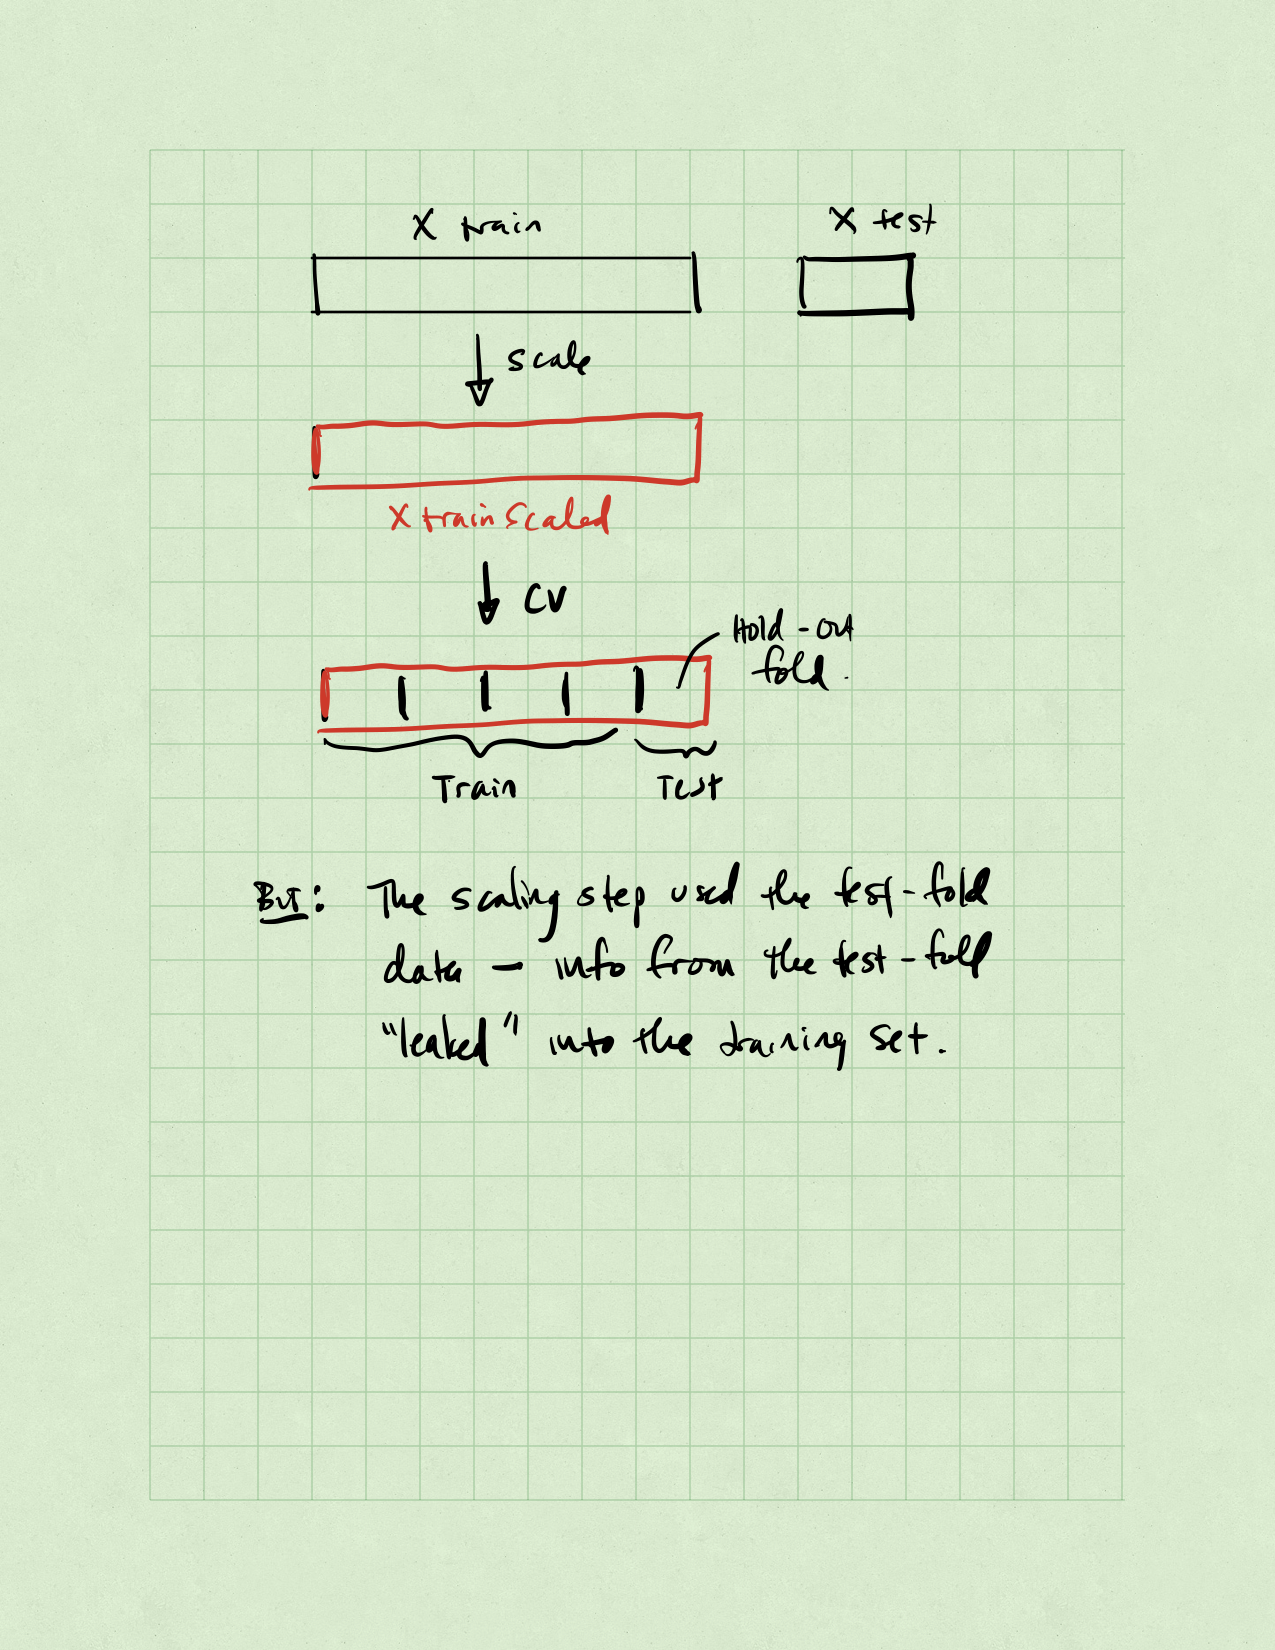 X train
X test
scale
X train scaled
CV
Hold-out
fold.
Train
Test
But: The scaling step used the test-fold
data - info from the test-fold
"leaked" into the training set.